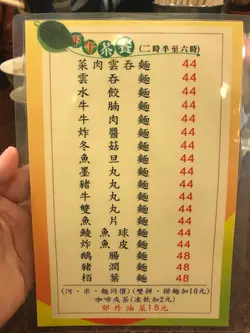 下午茶餐(二時半至六時)
菜肉雲吞麵 44
雲吞麵 44
水餃麵 44
牛腩麵 44
牛肉麵 44
炸醬麵 44
冬菇麵 44
魚旦麵 44
墨丸麵 44
豬丸麵 44
牛丸麵 44
雙丸麵 44
魚片麵 44
鯪魚球麵 44
炸魚皮麵 44
鵝腸麵 48
豬潤麵 48
栢葉麵 48
(河、米、麵同價)(雙拼、撈麵加10元)
咖啡或茶(凍飲加2元)
郊外油菜18元